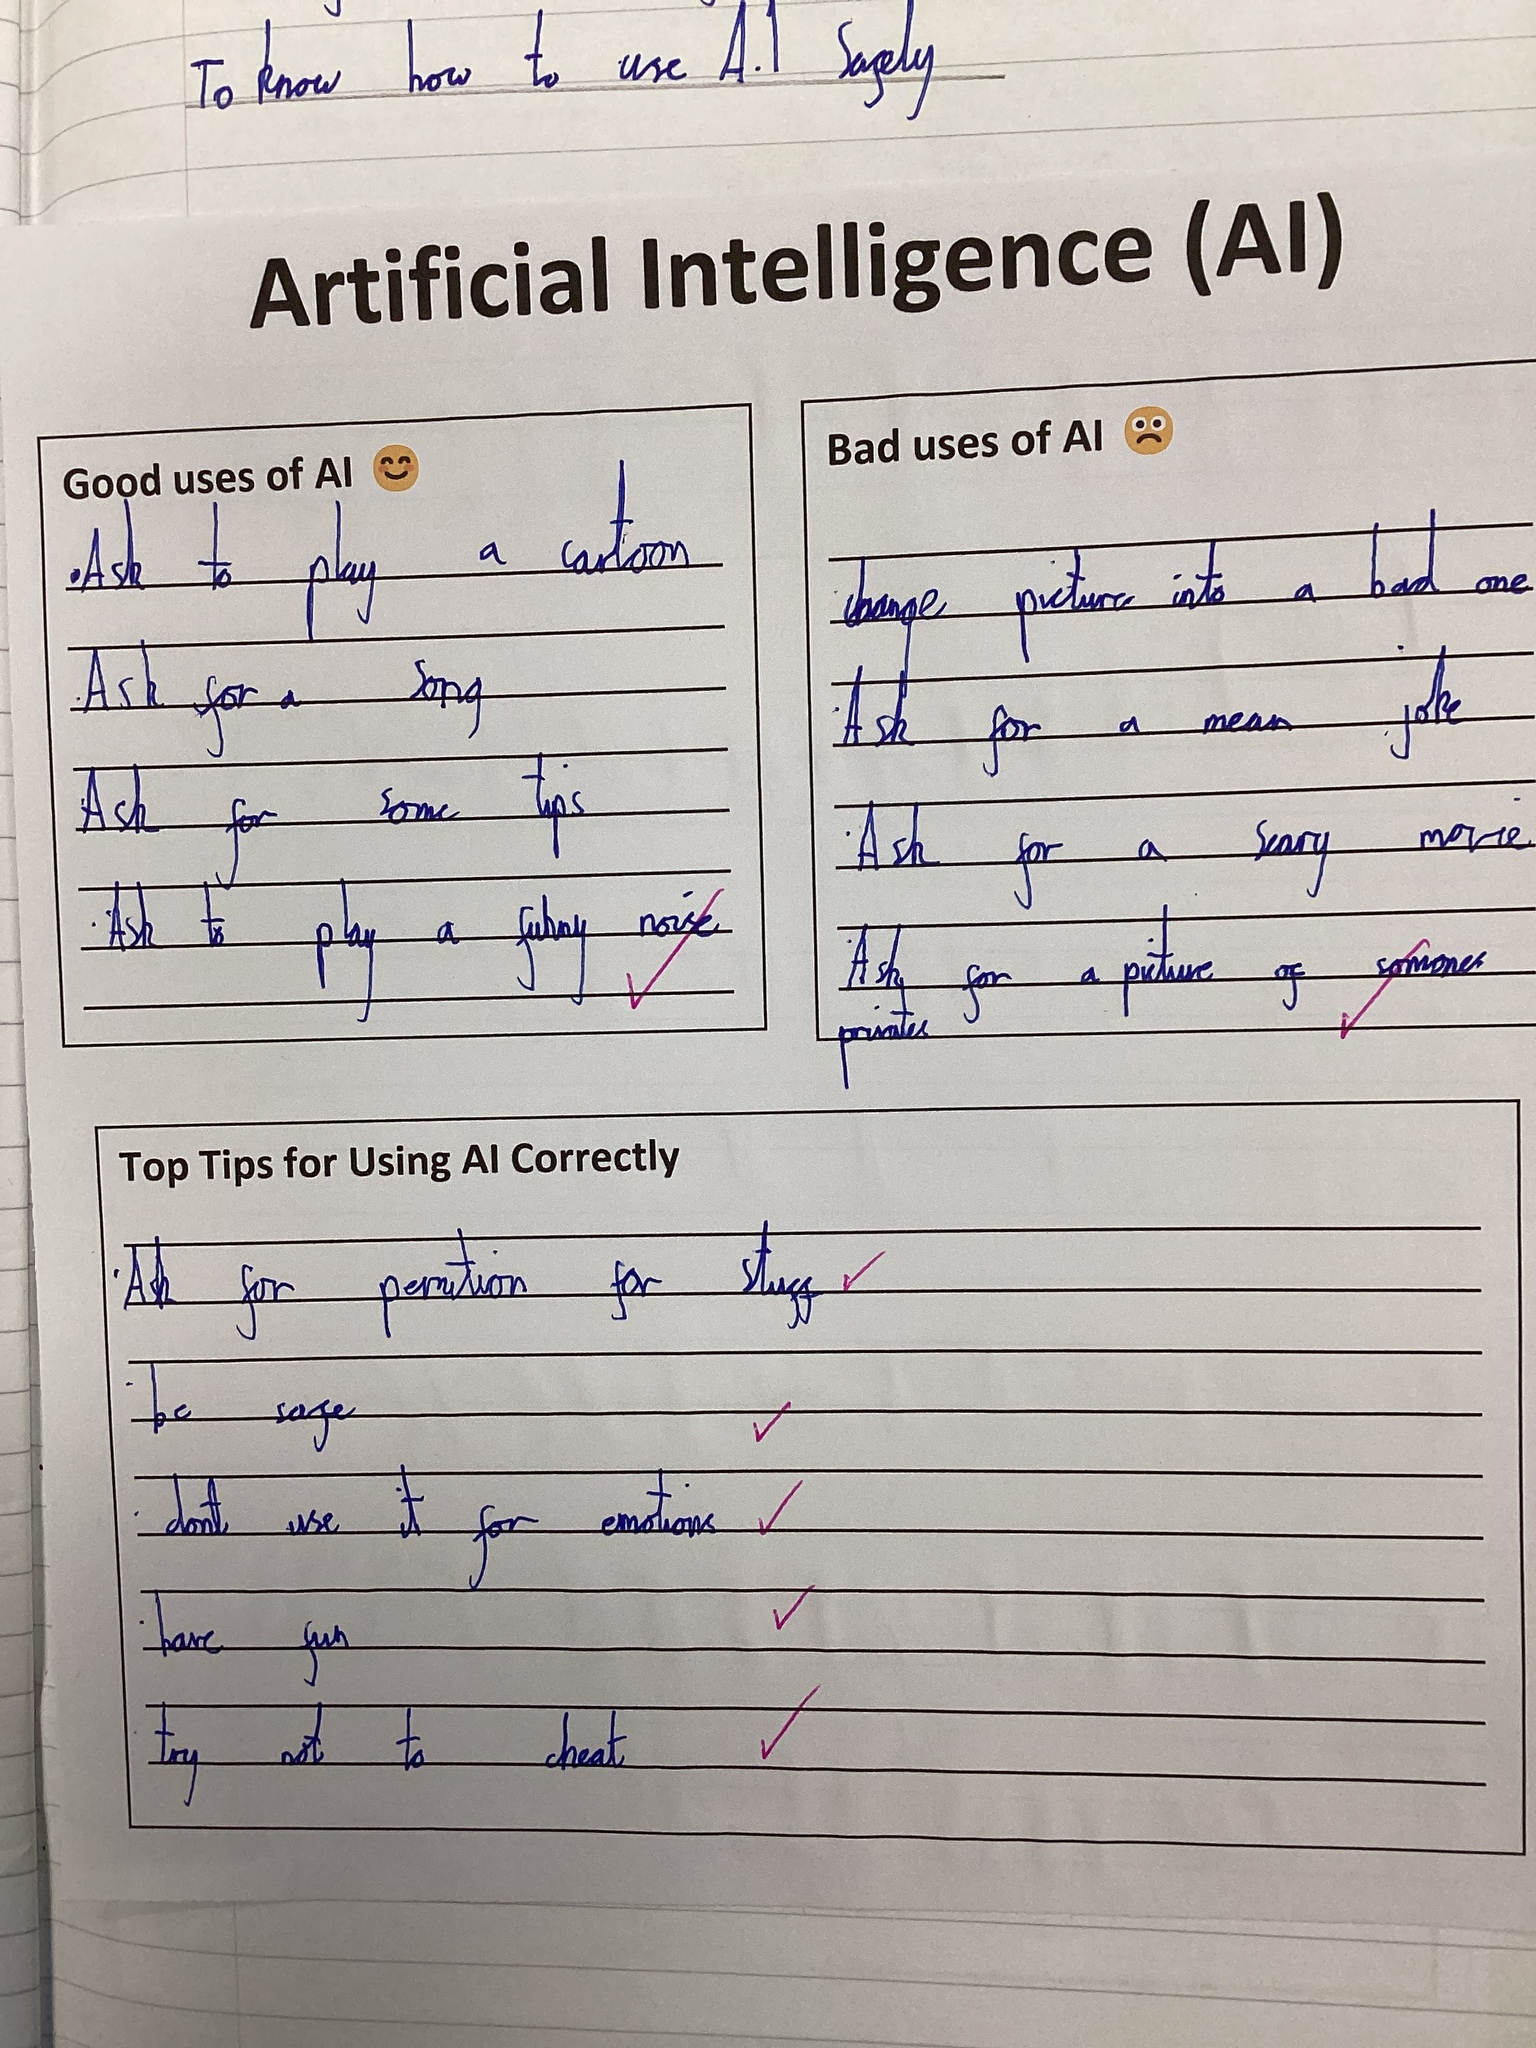 To know how to use A.I Safely
Artificial Intelligence (AI)
Good uses of AI 😊
• Ask to play a cartoon
• Ask for a Song
Ask for some tips
• Ask to play a funny noise
Bad uses of AI ☹
change picture into a bad one
• Ask for a mean joke
• Ask for a scary movie
Ask for a picture of somones
privates
Top Tips for Using AI Correctly
• Ask for permition for stuff
• be safe
• dont use it for emotions
• have fun
• try not to cheat